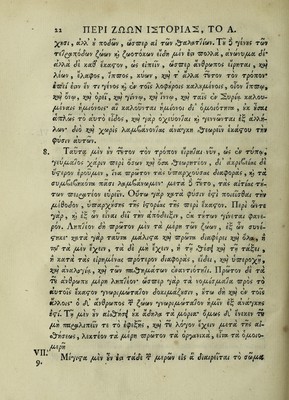 22 ΠΕΡΙ ΖΩΩΝ ΙΣΤΟΡΙΑΣ, ΤΟ Α.
χησι, ἀλλ' ὁ ποδῶν, ὥσπερ αἱ τῶν θαλαττίων. Τοῦ ἢ γένες τῶν
τετραπόδων ζώων ἢ ζωοτόκων εἴδη μέν ἐςι πολλὰ, ἀνώνυμα δέ·
ἀλλὰ δὲ καθ' ἕκαςον, ὡς εἰπεῖν, ὥσπερ ἄνθρωπος εἴρηται, καὶ
λέων, ἔλαφος, ἵππος, κύων, καὶ τ' ἄλλα τῦτον τὸν τρόπον·
ἐπεί ἐςιν ἕν τι γένος καὶ ἐν τοῖς λοφύροις καλουμένοις, οἷον ἵππῳ,
καὶ ὄνῳ, καὶ ὀρεῖ, καὶ γίννῳ, καὶ ἴννῳ, καὶ ταῖς ἐν Συρίᾳ καλου-
μέναις ἡμιόνοις· αἳ καλοῦνται ἡμίονοι δι' ὁμοιότητα, ἐκ ἔσαι
ἁπλῶς τὸ αὐτὸ εἶδος, καὶ γὰρ ὀχεύονται καὶ γεννῶνται ἐξ ἀλλή-
λων· διὸ καὶ χωρὶς λαμβάνοντας ἀνάγκη θεωρεῖν ἑκάςου τὴν
φύσιν αὐτῶν.
8. Ταῦτα μὲν ἐν τῦτον τὸν τρόπον εἴρηται νῦν, ὡς ἐν τύπῳ,
γεύματος χάριν περὶ ὅσων καὶ ὅσα θεωρητέον, δι' ἀκριβείας δὲ
ὕςερον ἐροῦμεν, ἵνα πρῶτον τὰς ὑπαρχούσας διαφορὰς, ἢ τὰ
συμβεβηκότα πᾶσι λαμβάνωμεν· μετὰ ἢ τῦτο, τὰς αἰτίας τέ-
των πειρατέον εὑρεῖν. Οὕτω γὰρ κατὰ φύσιν ἐςὶ ποιεῖσθαι τὴν
μέθοδον, ὑπαρχούσης τῆς ἱςορίας τῆς περὶ ἕκαςον. Περὶ ὧν τε
γὰρ, ἢ ἐξ ὧν εἶναι δεῖ τὴν ἀπόδειξιν, ἐκ τύτων γίνεται φανε-
ρόν. Ληπτέον δὴ πρῶτον μὲν τὰ μέρη τῶν ζώων, ἐξ ὧν συνέ-
ςηκε· κατὰ γὰρ ταῦτα μάλιςα καὶ πρῶτα διαφέρει καὶ ὅλα, ἢ
τῷ τὰ μὲν ἔχειν, τὰ δὲ μὴ ἔχειν, ἢ τῇ θέσει καὶ τῇ τάξει,
ἢ κατὰ τὰς εἰρημένας πρότερον διαφορὰς, εἴδει, καὶ ὑπεροχῇ,
καὶ ἀναλογίᾳ, καὶ τῶν παθημάτων ἐναντιότητι. Πρῶτον δὲ τὰ
τῦ ἀνθρώπου μέρη ληπτέον· ὥσπερ γὰρ τὰ νομίσματα πρὸς τὸ
αὐτοῖς ἕκαςοι γνωριμώτατον δοκιμάζουσιν, ὅτω δὴ καὶ ἐν τοῖς
ἄλλοις· ὁ δ' ἄνθρωπος τῶν ζώων γνωριμώτατον ἡμῖν ἐξ ἀνάγκης
ἐςί. Τῇ μὲν ἐν αἰσθήσει ἐκ ἄδηλα τὰ μόρια· ὅμως δ' ἕνεκεν τῦ
μὴ παραλιπεῖν τε τὸ ἐφεξῆς, καὶ τῦ λόγον ἔχειν μετὰ τῆς αἰ-
σθήσεως, λεκτέον τὰ μέρη πρῶτον τὰ ὀργανικὰ, εἶτα τὰ ὁμοιο-
μερῆ.
VII. 9. Μέγιςα μὲν ἐν ἐςι τάδε τῶν μερῶν εἰς ἃ διαιρεῖται τὸ σῶμα